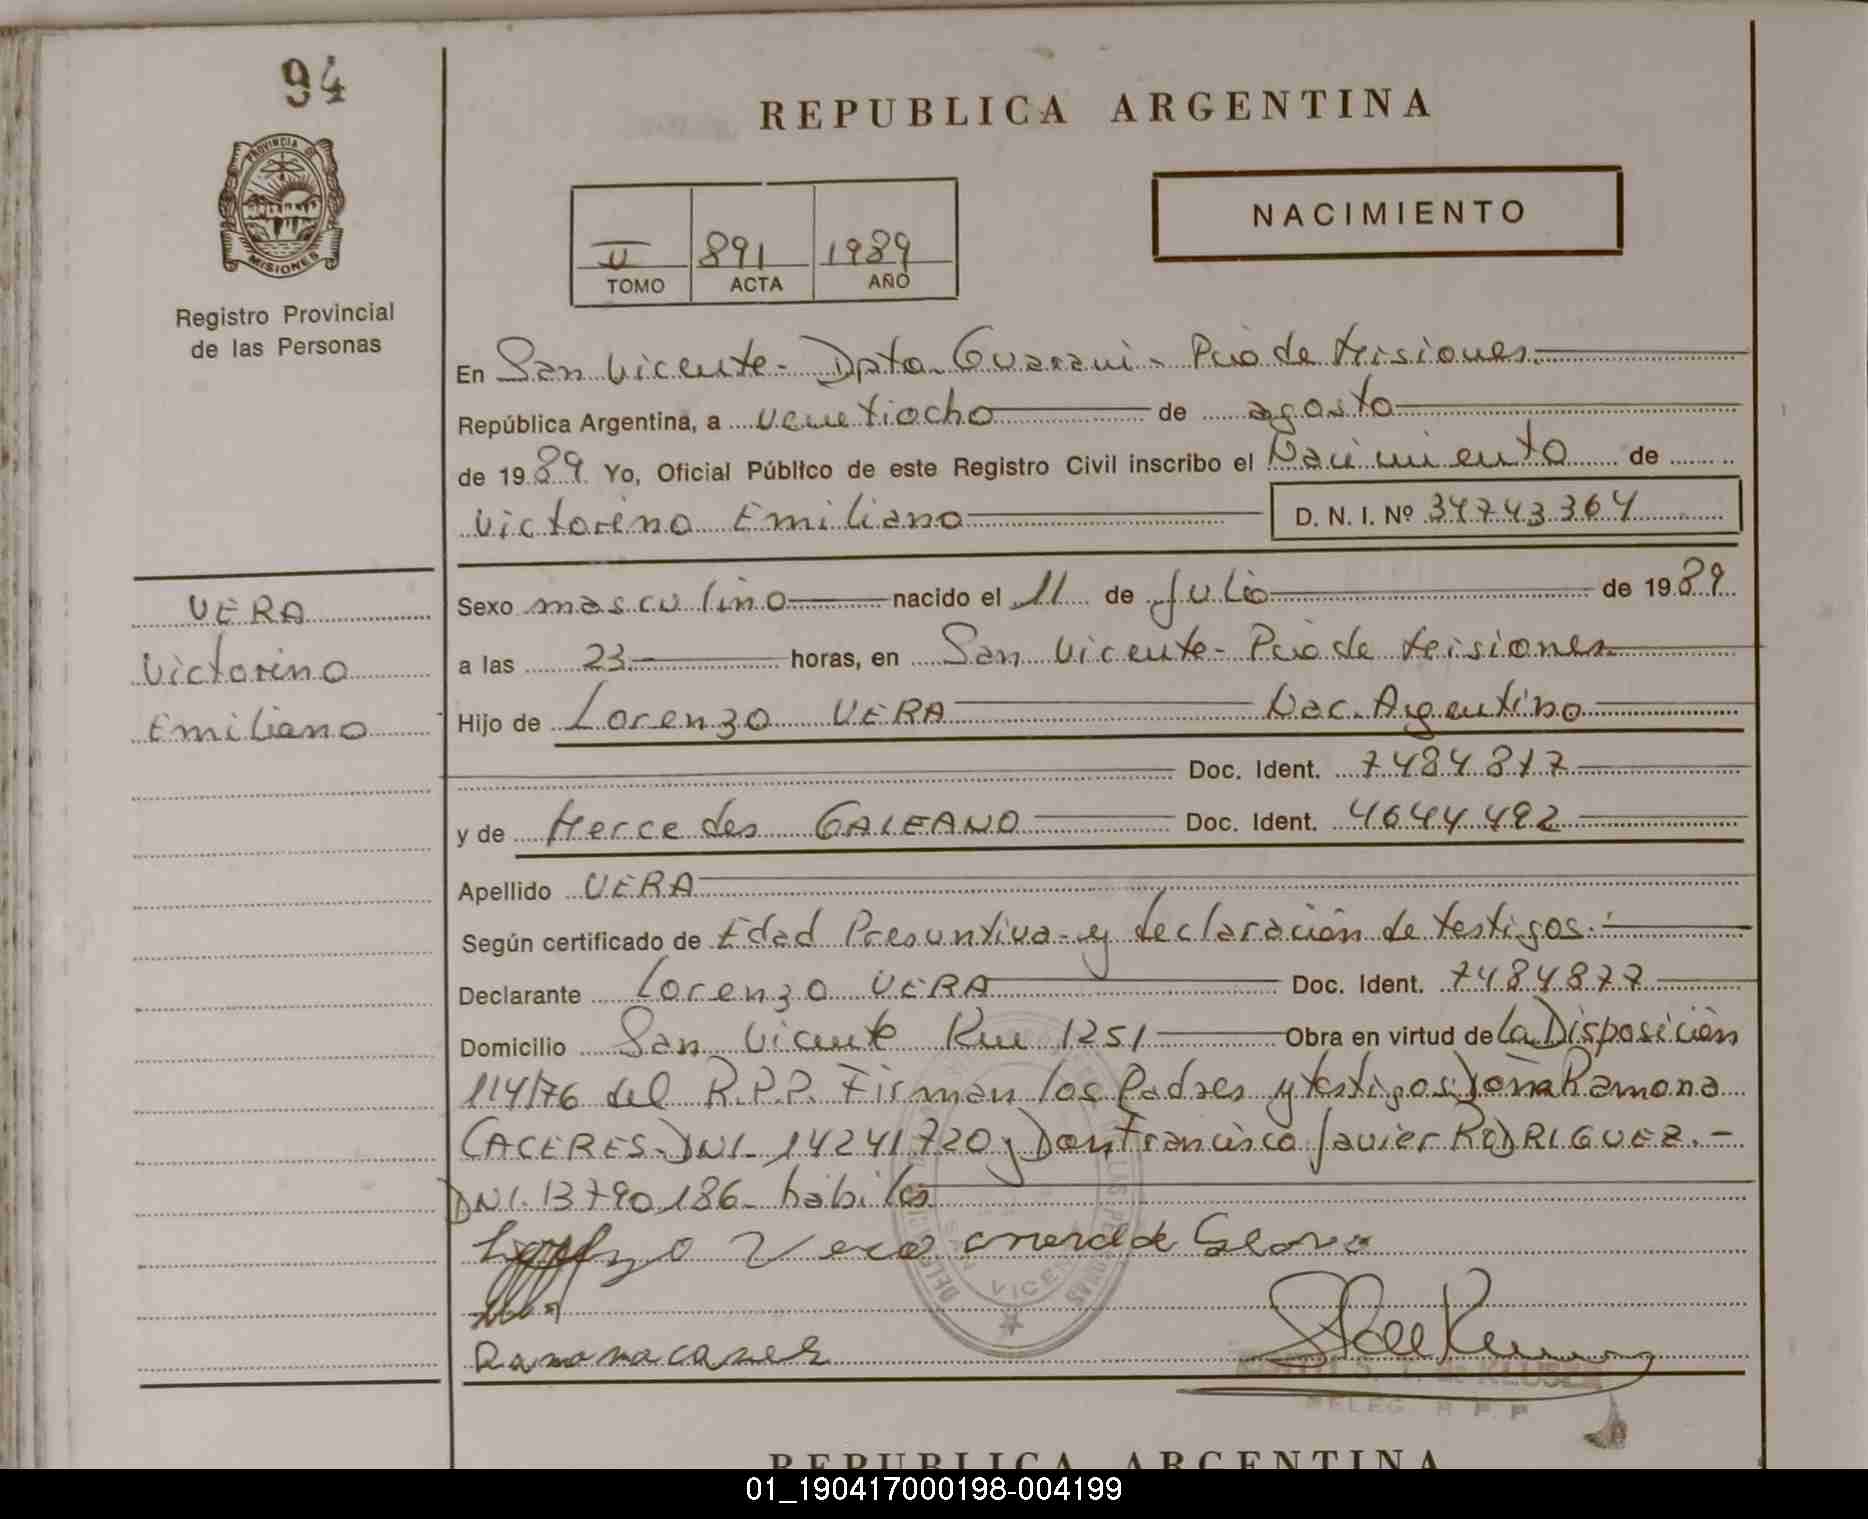 94
REPUBLICA ARGENTINA
PROVINCIA DE
MISIONES
Registro Provincial
de las Personas
II 891 1989
TOMO ACTA AÑO
NACIMIENTO
En San Vicente - Dpto. Guarani - Pcia de Misiones.
República Argentina, a veintiocho de agosto
de 1989 Yo, Oficial Público de este Registro Civil inscribo el Nacimiento de
Victorino Emiliano D. N. I. Nº 34743364
VERA
Victorino
Emiliano
Sexo masculino nacido el 11 de Julio de 1989
a las 23 horas, en San Vicente - Pcia de Misiones
Hijo de Lorenzo VERA Nac. Argentino
Doc. Ident. 7484877
y de Mercedes GALEANO Doc. Ident. 4644492
Apellido VERA
Según certificado de Edad Presuntiva - y declaración de testigos.
Declarante Lorenzo VERA Doc. Ident. 7484877
Domicilio San Vicente Km 1251 Obra en virtud de la Disposición
114/76 del R.P.P. Firman los Padres y testigos: Doña Ramona
CACERES - DNI - 14241720 y Don Francisco Javier RODRIGUEZ. -
DNI. 13790186 - hábiles
Vera
Ramona
KLUSER
DELEG. R P P
REPUBLICA ARGENTINA
01_190417000198-004199